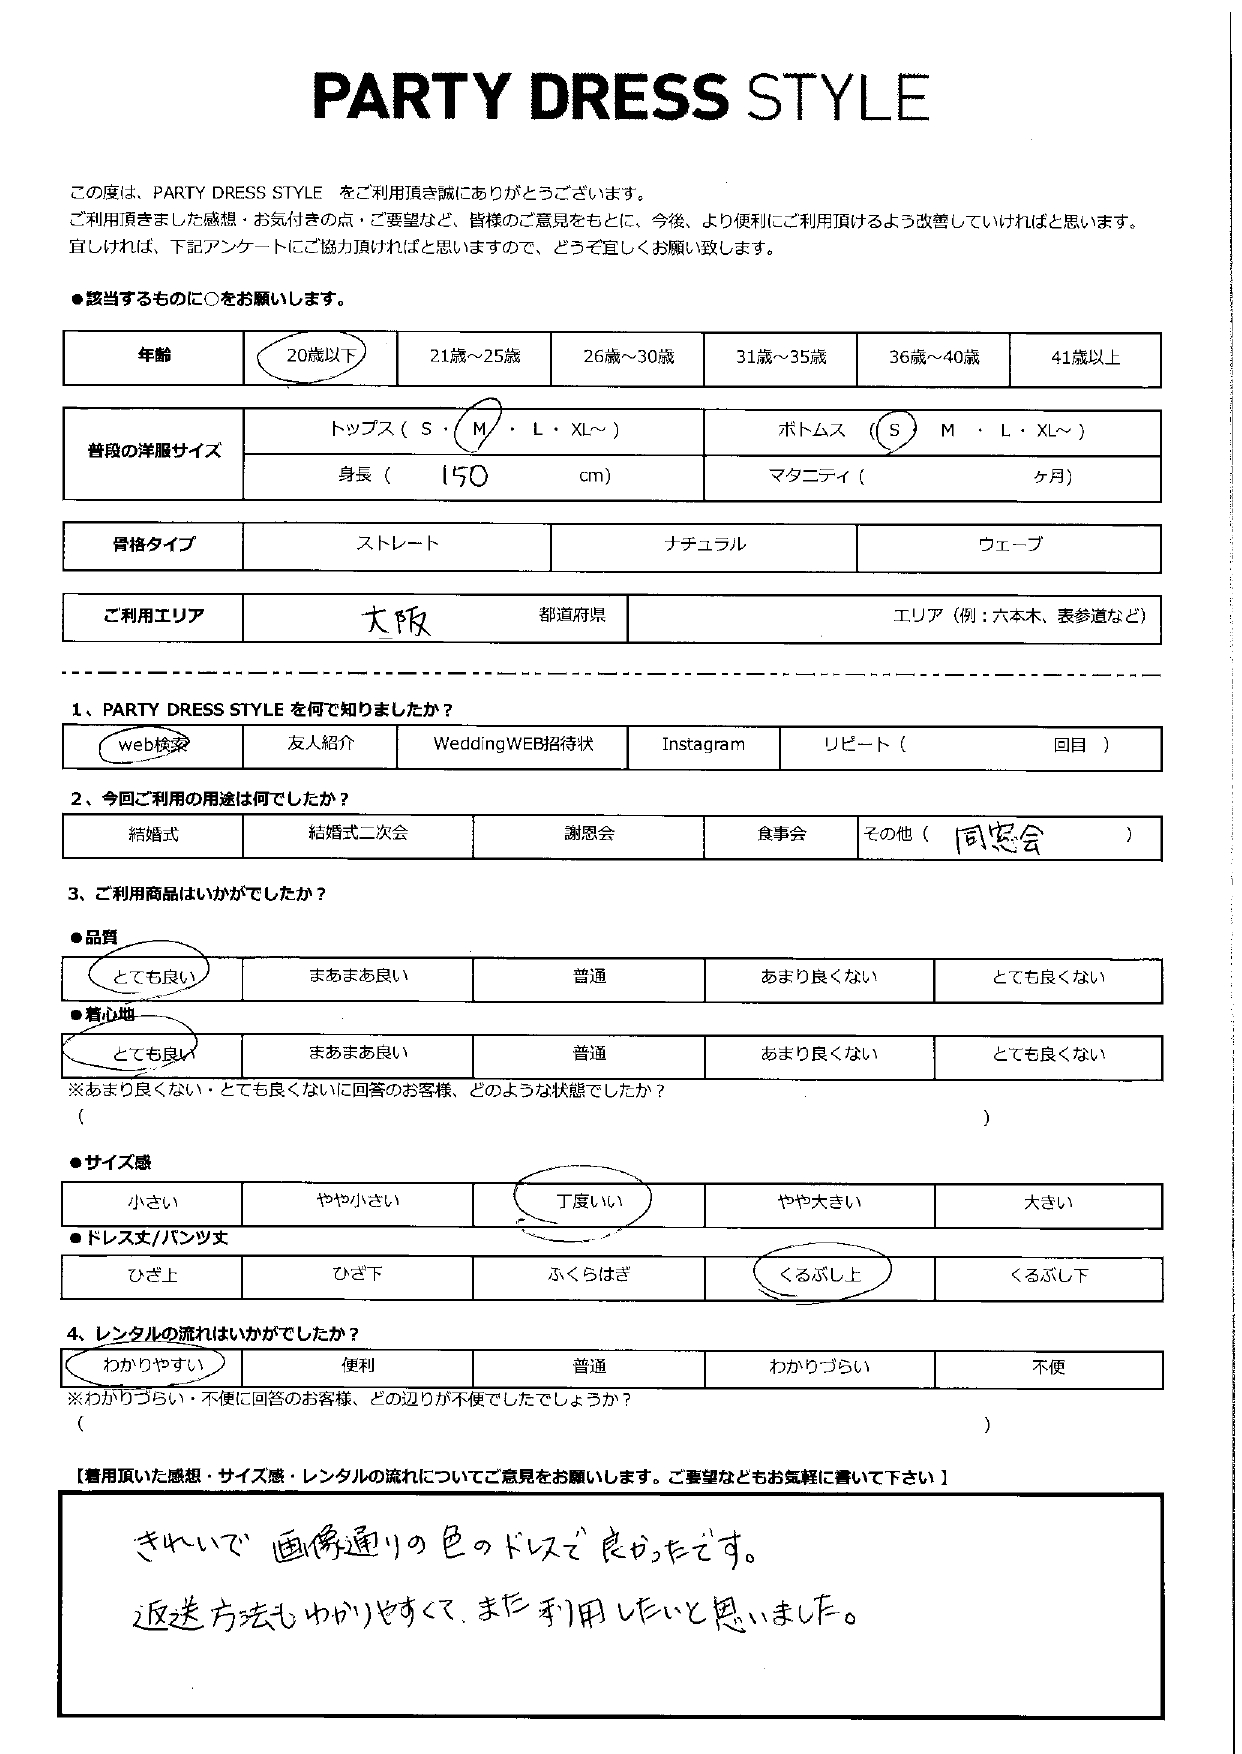 PARTY DRESS STYLE
この度は、PARTY DRESS STYLE をご利用頂き誠にありがとうございます。
ご利用頂きました感想・お気付きの点・ご要望など、皆様のご意見をもとに、今後、より便利にご利用頂けるよう改善していければと思います。
宜しければ、下記アンケートにご協力頂ければと思いますので、どうぞ宜しくお願い致します。
●該当するものに○をお願いします。
年齢 20歳以下 21歳～25歳 26歳～30歳 31歳～35歳 36歳～40歳 41歳以上
普段の洋服サイズ
トップス ( S ・ M ・ L ・ XL～ ) ボトムス ( S ・ M ・ L ・ XL～ )
身長 ( 150 cm) マタニティ ( ヶ月)
骨格タイプ ストレート ナチュラル ウェーブ
ご利用エリア 大阪 都道府県 エリア (例：六本木、表参道など)
1、PARTY DRESS STYLE を何で知りましたか？
web検索 友人紹介 WeddingWEB招待状 Instagram リピート ( 回目 )
2、今回ご利用の用途は何でしたか？
結婚式 結婚式二次会 謝恩会 食事会 その他 ( 同窓会 )
3、ご利用商品はいかがでしたか？
●品質
とても良い まあまあ良い 普通 あまり良くない とても良くない
●着心地
とても良い まあまあ良い 普通 あまり良くない とても良くない
※あまり良くない・とても良くないに回答のお客様、どのような状態でしたか？
( )
●サイズ感
小さい やや小さい 丁度いい やや大きい 大きい
●ドレス丈/パンツ丈
ひざ上 ひざ下 ふくらはぎ くるぶし上 くるぶし下
4、レンタルの流れはいかがでしたか？
わかりやすい 便利 普通 わかりづらい 不便
※わかりづらい・不便に回答のお客様、どの辺りが不便でしたでしょうか？
( )
【着用頂いた感想・サイズ感・レンタルの流れについてご意見をお願いします。ご要望などもお気軽に書いて下さい 】
きれいで 画像通りの色のドレスで 良かったです。
返送方法もわかりやすくて、また利用したいと思いました。